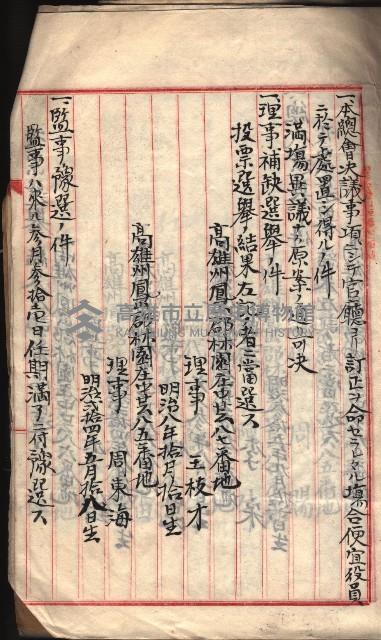 一、本總會決議事項ニシテ官廳ヨリ訂正ヲ命セラレタル場合便宜役員
ニ於テ處置シ得ルノ件
満場異議ナク原案ノ通可決
一、理事補缺選擧ノ件
投票選擧ノ結果左記ノ者ニ當選ス
高雄州鳳山郡林園庄中芸八七番地
理事 王枝才
明治八年拾月拾日生
高雄州鳳山郡林園庄中芸八五番地
理事 周東海
明治貳拾四年五月拾八日生
一、監事豫選ノ件
監事ハ來ル參月參拾壹日任期滿了ニ付豫選ス
高雄市立歷史博物館
KAOHSIUNG MUSEUM OF HISTORY